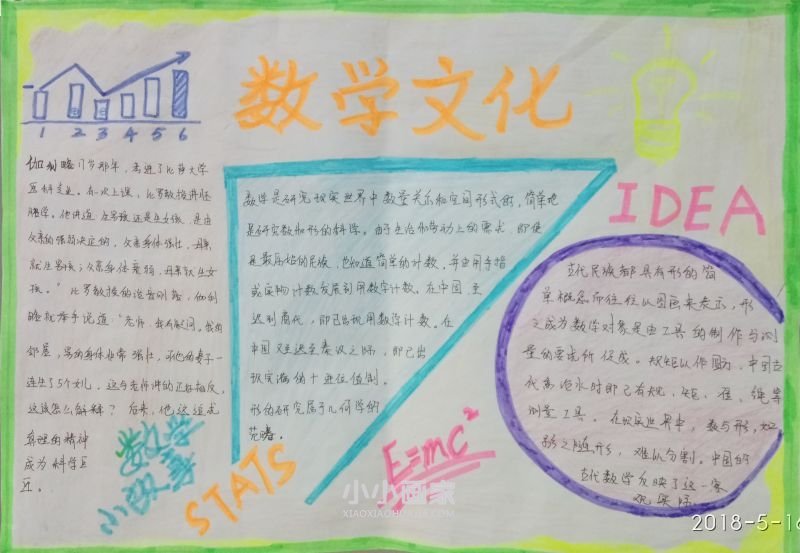 数学文化
1 2 3 4 5 6
IDEA
伽利略17岁那年，考进了比萨大学
医科专业。有一次上课，比罗教授讲胚
胎学。他讲道"生男孩还是生女孩，是由
父亲的强弱决定的，父亲身体强壮，母亲
就生男孩；父亲身体衰弱，母亲就生女
孩。"比罗教授的话音刚落，伽利
略就举手说道："老师，我有疑问。我的
邻居，男的身体非常强壮，可他的妻子一
连生了5个女儿，这与老师讲的正好相反，
这该怎么解释？后来，他这追求
真理的精神
成为科学巨
匠。
数学
小故事
STATS
数学是研究现实世界中数量关系和空间形式的，简单地
是研究数和形的科学。由于生活和劳动上的需求，即使
是最原始的民族，也知道简单的计数，并由用手指
或实物计数发展到用数字计数。在中国，至
迟到商代，即已出现用数字计数。在
中国，又至迟至秦汉之际，即已出
现完满的十进位值制。
形的研究属于几何学的
范畴。
E=mc²
古代民族都具有形的简
单概念而往往以图画来表示，形
之成为数学对象是由工具的制作与测
量的要求所促成。规矩以作圆方，中国古
代禹治水时即已有规、矩、准、绳等
测量工具。在现实世界中，数与形，如
形之随形，难以分割。中国的
古代数学反映了这一客
观实际
小小画家
XIAOXIAOHUAJIA.COM
2018-5-16